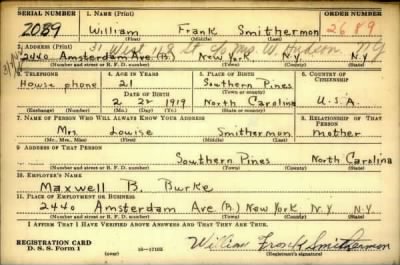 SERIAL NUMBER 1. NAME (Print) ORDER NUMBER
2089 William Frank Smithermon 2689
(First) (Middle) (Last)
31 West 118 St. c/o Mrs. W. Hudson NY
2. ADDRESS (Print)
2440 Amsterdam Ave (B.) New York N.Y. N.Y
(Number and street or R. F. D. number) (Town) (County) (State)
3. TELEPHONE 4. AGE IN YEARS 5. PLACE OF BIRTH 6. COUNTRY OF CITIZENSHIP
House phone 21 Southern Pines
DATE OF BIRTH (Town or county)
2 22 1919 North Carolina U.S.A.
(Exchange) (Number) (Mo.) (Day) (Yr.) (State or country)
7. NAME OF PERSON WHO WILL ALWAYS KNOW YOUR ADDRESS 8. RELATIONSHIP OF THAT PERSON
Mrs. Louise Smitherman mother
(Mr., Mrs., Miss) (First) (Middle) (Last)
9. ADDRESS OF THAT PERSON
Southern Pines North Carolina
(Number and street or R. F. D. number) (Town) (County) (State)
10. EMPLOYER'S NAME
Maxwell B. Burke
11. PLACE OF EMPLOYMENT OR BUSINESS
2440 Amsterdam Ave (B.) New York N.Y. N.Y
(Number and street or R. F. D. number) (Town) (County) (State)
I AFFIRM THAT I HAVE VERIFIED ABOVE ANSWERS AND THAT THEY ARE TRUE.
REGISTRATION CARD
D. S. S. Form 1 (over) William Frank Smithermon
(Registrant's signature)